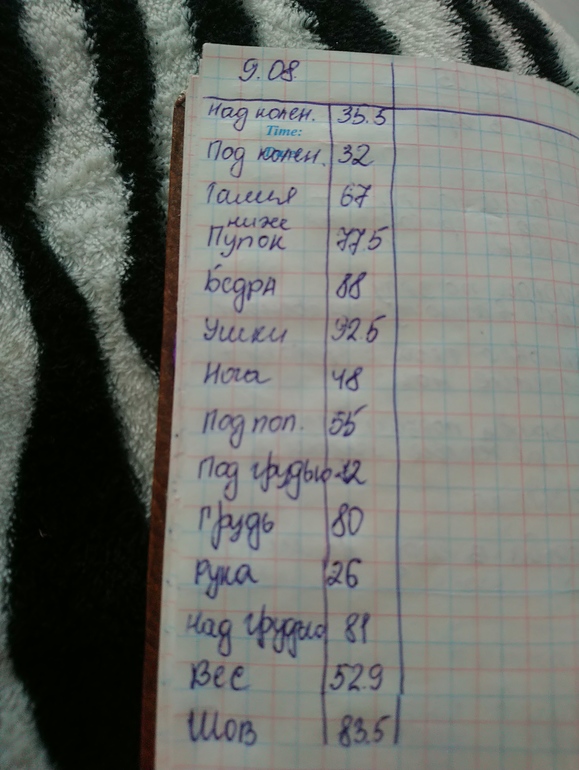 9.08
над колен. 35.5
Time:
Под колен. 32
Талия 67
ниже
Пупок 77.5
Бёдра 88
Ушки 92.5
Нога 48
Под поп. 55
Под грудью 72
Грудь 80
рука 26
над грудью 81
Вес 52.9
Шов 83.5